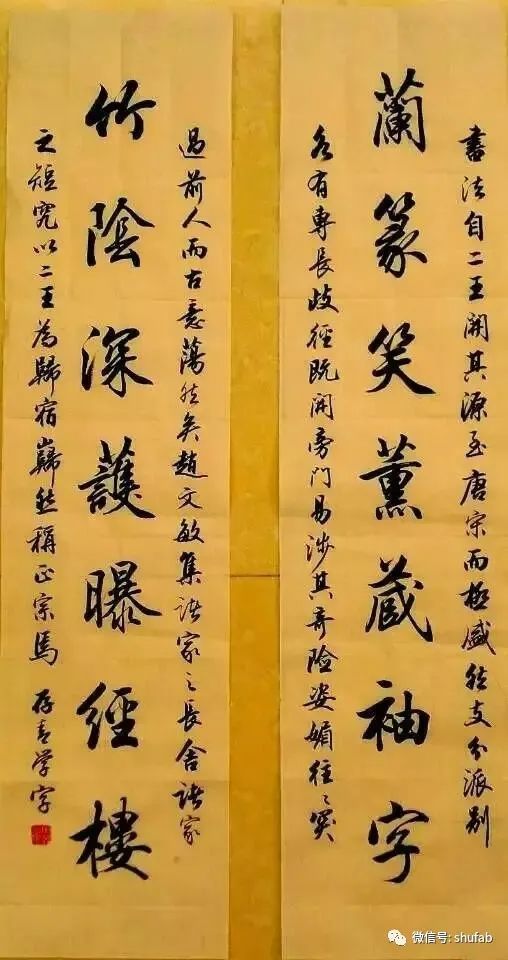 書法自二王開其源至唐宋而極盛然支分派别
蘭篆笑薰藏袖字
各有專長歧徑既開旁門易涉其奇險姿媚往〻突
過前人而古意蕩然矣趙文敏集諸家之長舍諸家
竹陰深護曝經樓
之短究以二王為歸宿巋然稱正宗焉 存青學字
微信号: shufab